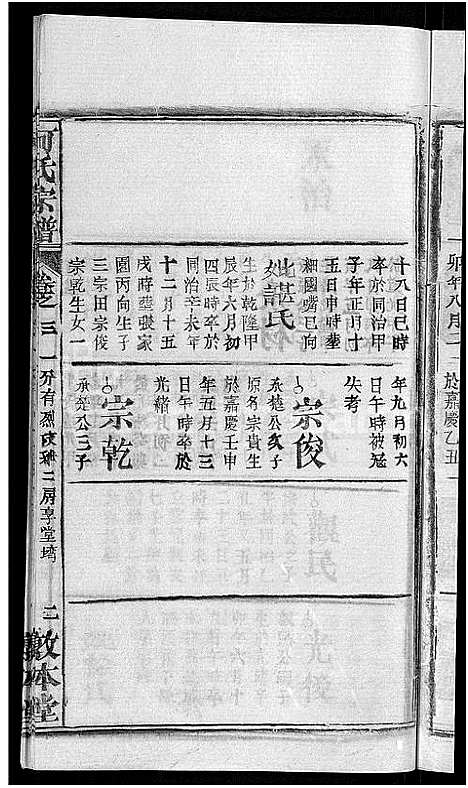 卯年八月二
於嘉慶乙丑
十八日巳時
卒於同治甲
子年正月十
五日申時葬
細國嘴巳向
妣諶氏
生於乾隆甲
辰年六月初
四辰時卒於
同治辛未年
十二月十五
戌時葬張家
園丙向生子
三宗田宗俊
宗乾生女一
年九月初六
日午時被冦
失考
宗俊
承楚公次子
原名宗貴生
於嘉慶壬申
年五月十三
日午時卒於
光緒
宗乾
承楚公三子
何氏宗譜
卷之三一
有烈
二房享堂灣
三
敦本堂